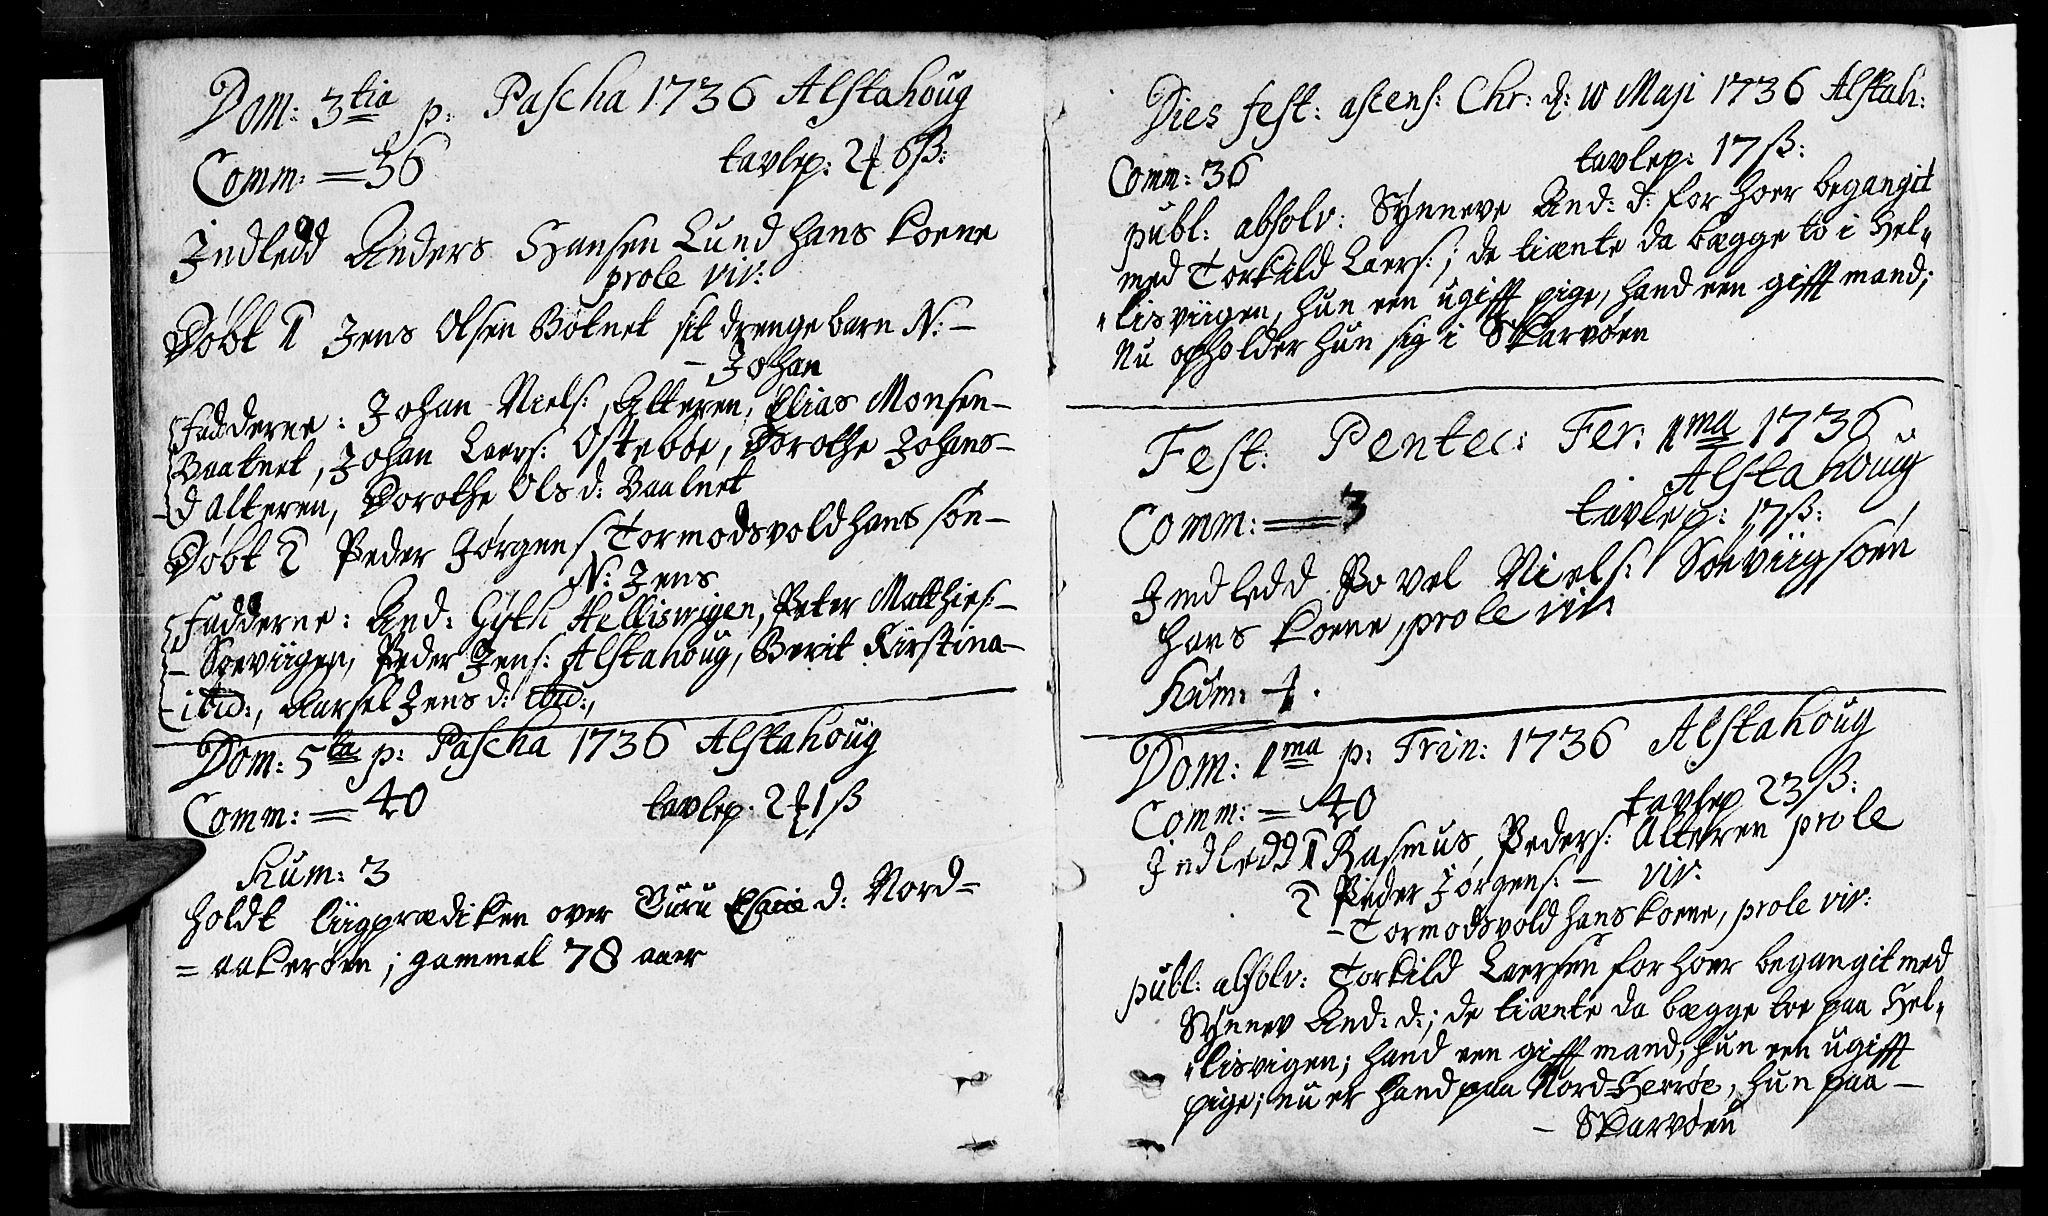 Dom: 3tia p: Pascha 1736 Alstahoug
Comm: = 36 tavlep: 2 # 6 ß:
Indledd Anders Hansen Lund hans kone
prole viv:
Døbt 1 Jens Olsen Botnet sit drengebarn N: –
– Johan
Fadderne: Johan Niels: Alteren, Elias Monsen –
Baatnet, Johan Laers: Ostebøe, Dorothe Johans –
– d Alteren, Dorothe Ols d: Baalnet
Døbt 2 Peder Jørgens Tormodsvold hans søn –
N: Jens
Fadderne: And: Giert: Hellisvigen, Peter Matthies: –
– Soeviigen, Peder Jens: Alstahoug, Berit Kirstina –
– ibid:, Karsel Jens d: ibid:,
Dom: 5ta p: Pascha 1736 Alstahoug
Comm: = 40 tavlep: 2 # 1 ß
Hum: 3
holdt liigprædiken over Guru Esaiæ d: Nord =
= aakerøen; gammel 78 aaer
Dies fest: ascens: Chr: d: 10 Maji 1736 Alstah:
Comm: 36 tavlep: 17 ß:
publ: absolv: Synneve And: d: for hoer begangit
med Torkild Laers:; de tiænte da begge to i Hel„
„lisviigen, hun een ugifft pige, hand een gifft mand;
Nu opholder hun sig i Skarvøen
Fest: Pentec: Fer: 1ma 1736
Alstahoug
Comm: = 3 tavlep: 17 ß:
Indledd Povel Niels: Søeviigsøen
hans kone, prole viv:
Hum: 1.
Dom: 1ma p: Trin: 1736 Alstahoug
Comm: = 40 tavlep 23 ß:
Indledd 1 Rasmus Peders: Alteren prole
viv:
2 Peder Jørgens: –
– Tormodsvold hans kone, prole viv:
publ: absolv: Torkild Laersen for hoer begangit med
Synnev And: d:; de tiænte da begge toe paa Hel„
„lisvigen; hand een gifft mand, hun een ugifft
pige; nu er hand paa Nord Herrøe, hun paa –
– Skarvøen